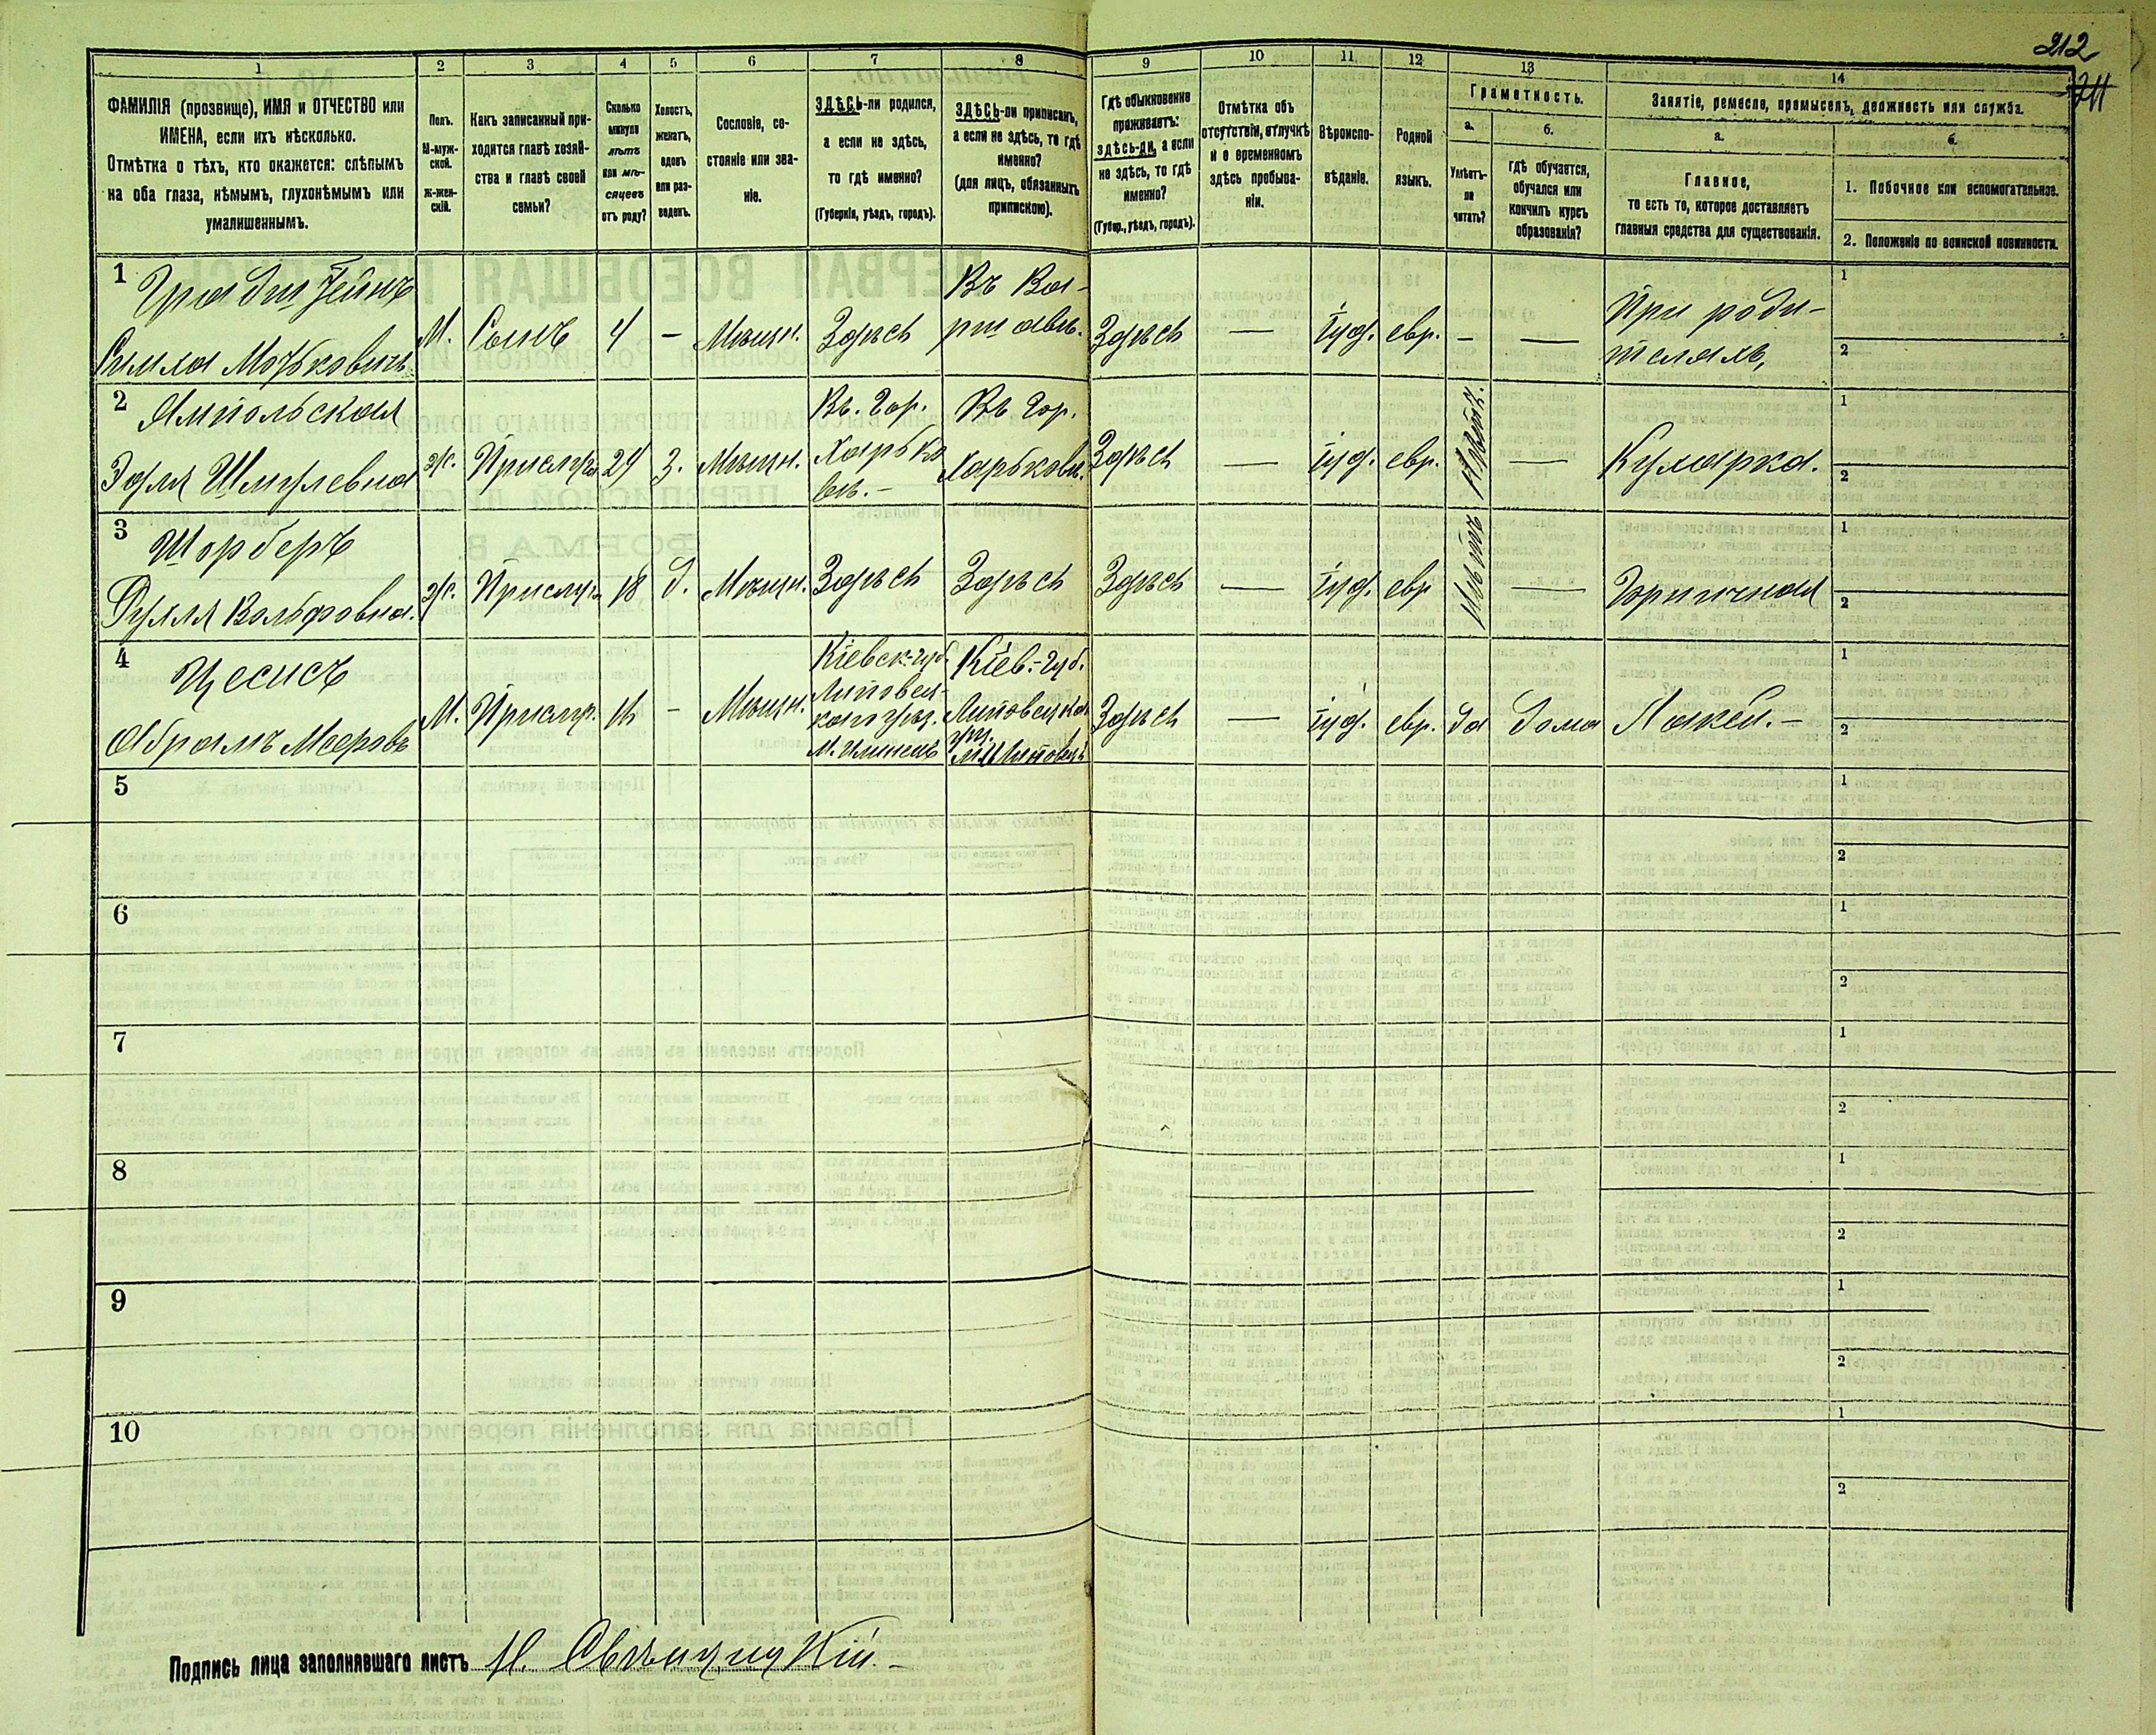 212
211
1 2 3 4 5 6 7 8 9 10 11 12 13 14
ФАМИЛІЯ (прозвище), ИМЯ и ОТЧЕСТВО или
ИМЕНА, если ихъ нѣсколько.
Отмѣтка о тѣхъ, кто окажется: слѣпымъ
на оба глаза, нѣмымъ, глухонѣмымъ или
умалишеннымъ.
Полъ.
М-муж-
ской.
ж-жен-
скій.
Какъ записанный при-
ходится главѣ хозяй-
ства и главѣ своей
семьи?
Сколько
минуло
лѣтъ
или мѣ-
сяцевъ
отъ роду?
Холостъ,
женатъ,
вдовъ
или раз-
веденъ.
Сословіе, со-
стояніе или зва-
ніе.
ЗДѢСЬ-ли родился,
а если не здѣсь,
то гдѣ именно?
(Губернія, уѣздъ, городъ).
ЗДѢСЬ-ли приписанъ,
а если не здѣсь, то гдѣ
именно?
(для лицъ, обязанныхъ
припискою).
Гдѣ обыкновенно
проживаетъ:
здѣсь-ли, а если
не здѣсь, то гдѣ
именно?
(Губер., уѣздъ, городъ).
Отмѣтка объ
отсутствіи, отлучкѣ
и о временномъ
здѣсь пребыва-
ніи.
Вѣроиспо-
вѣданіе.
Родной
языкъ.
Грамотность.
а.
Умѣетъ-
ли
читать?
б.
гдѣ обучается,
обучался или
кончилъ курсъ
образованія?
Занятіе, ремесло, промыселъ, должность или служба.
а.
Главное,
то есть то, которое доставляетъ
главныя средства для существованія.
б.
1. Побочное или вспомогательное.
2. Положеніе по воинской повинности.
1
Симха Мошковичъ
М. Сынъ 4 — Мѣщн. Здѣсь
Въ Ва-
ршавѣ.
Здѣсь — іуд. евр. — —
При роди-
теляхъ,
1
2
2 Ямпольская
Эдля Шмулевна
Ж. Прислуга 24 З. Мѣщн.
Въ. Гор.
Харько
вѣ. —
Въ Гор.
Харьковѣ.
Здѣсь — іуд. евр. Неграм. —
Кухарка.
1
2
3 Шорберъ
Рухля Вольфовна.
Ж. Прислуга 18 д. Мѣщн. Здѣсь Здѣсь Здѣсь — іуд. евр — Горничная
1
2
4 Цесисъ
Абрамъ Мееровъ
М. Прислуг. 16 — Мѣщн.
Кіевск. губ.
Липовец-
каго уѣз.
М. Илинецъ
Кіев. — Губ.
Липовецка
уѣз.
Здѣсь — іуд. евр. да дома Лакей. —
1
2
5
1
2
6
1
2
7
1
2
8
1
2
9
1
2
10
1
2
Подпись лица заполнявшаго листъ